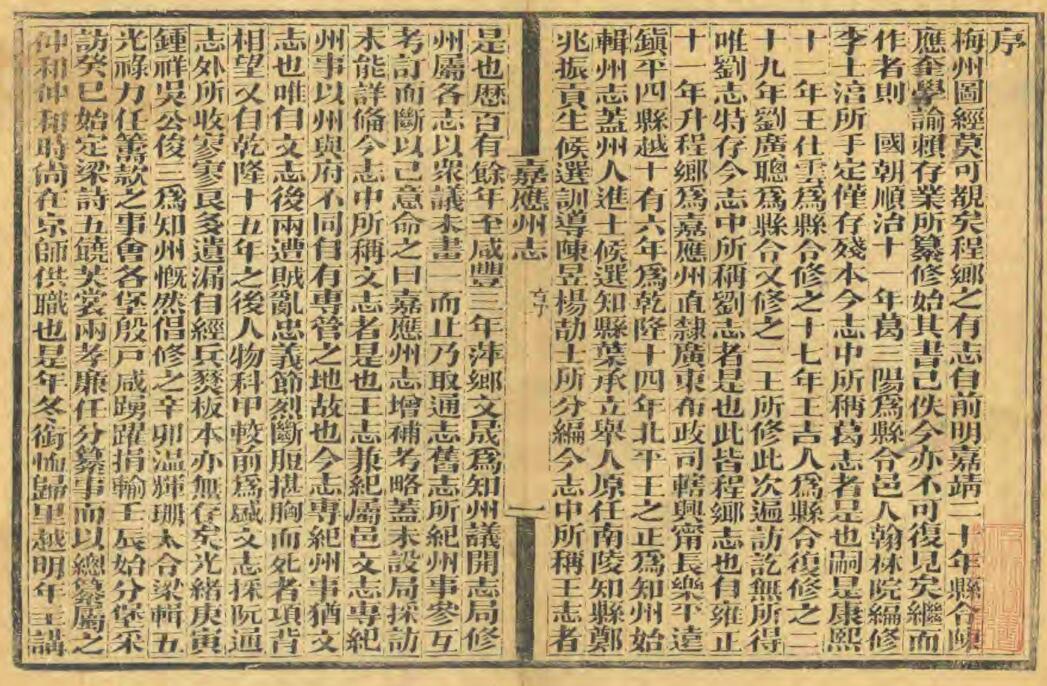 序
梅州圖經莫可覩矣程鄉之有志自前明嘉靖二十年縣令陳
應奎學諭賴存業所纂修始其書已佚今亦不可復見矣繼而
作者則 國朝順治十一年葛三陽爲縣令邑人翰林院編修
李士淓所手定僅存殘本今志中所稱葛志者是也嗣是康熙
十二年王仕雲爲縣令修之十七年王吉人爲縣令復修之二
十九年劉廣聰爲縣令又修之二王所修此次遍訪訖無所得
唯劉志特存今志中所稱劉志者是也此皆程鄉志也自雍正
十一年升程鄉爲嘉應州直隸廣東布政司轄興甯長樂平遠
鎮平四縣越十有六年爲乾隆十四年北平王之正爲知州始
輯州志蓋州人進士候選知縣葉承立舉人原任南陵知縣鄭
兆振貢生候選訓導陳昱楊劼士所分編今志中所稱王志者
嘉應州志
序
一
是也歷百有餘年至咸豐三年萍鄉文晟爲知州議開志局修
州屬各志以衆議未畫一而止乃取通志舊志所紀州事參互
考訂而斷以己意命之曰嘉應州志增補考略蓋未設局採訪
未能詳備今志中所稱文志者是也王志兼紀屬邑文志專紀
州事以州與府不同自有專管之地故也今志專紀州事猶文
志也唯自文志後兩遭賊亂忠義節烈斷脰揕胸而死者項背
相望又自乾隆十五年之後人物科甲較前爲盛文志採阮通
志外所收寥寥艮多遺漏自經兵燹板本亦無存矣光緒庚寅
鍾祥吳公俊三爲知州慨然倡修之辛卯溫輝珊太令梁輯五
光祿力任籌款之事會各堡殷戸咸踴躍捐輸壬辰始分堡采
訪癸巳始定梁詩五饒芙裳兩孝廉任分纂事而以總纂屬之
仲和仲和時尚在京師供職也是年冬銜恤歸里越明年主講